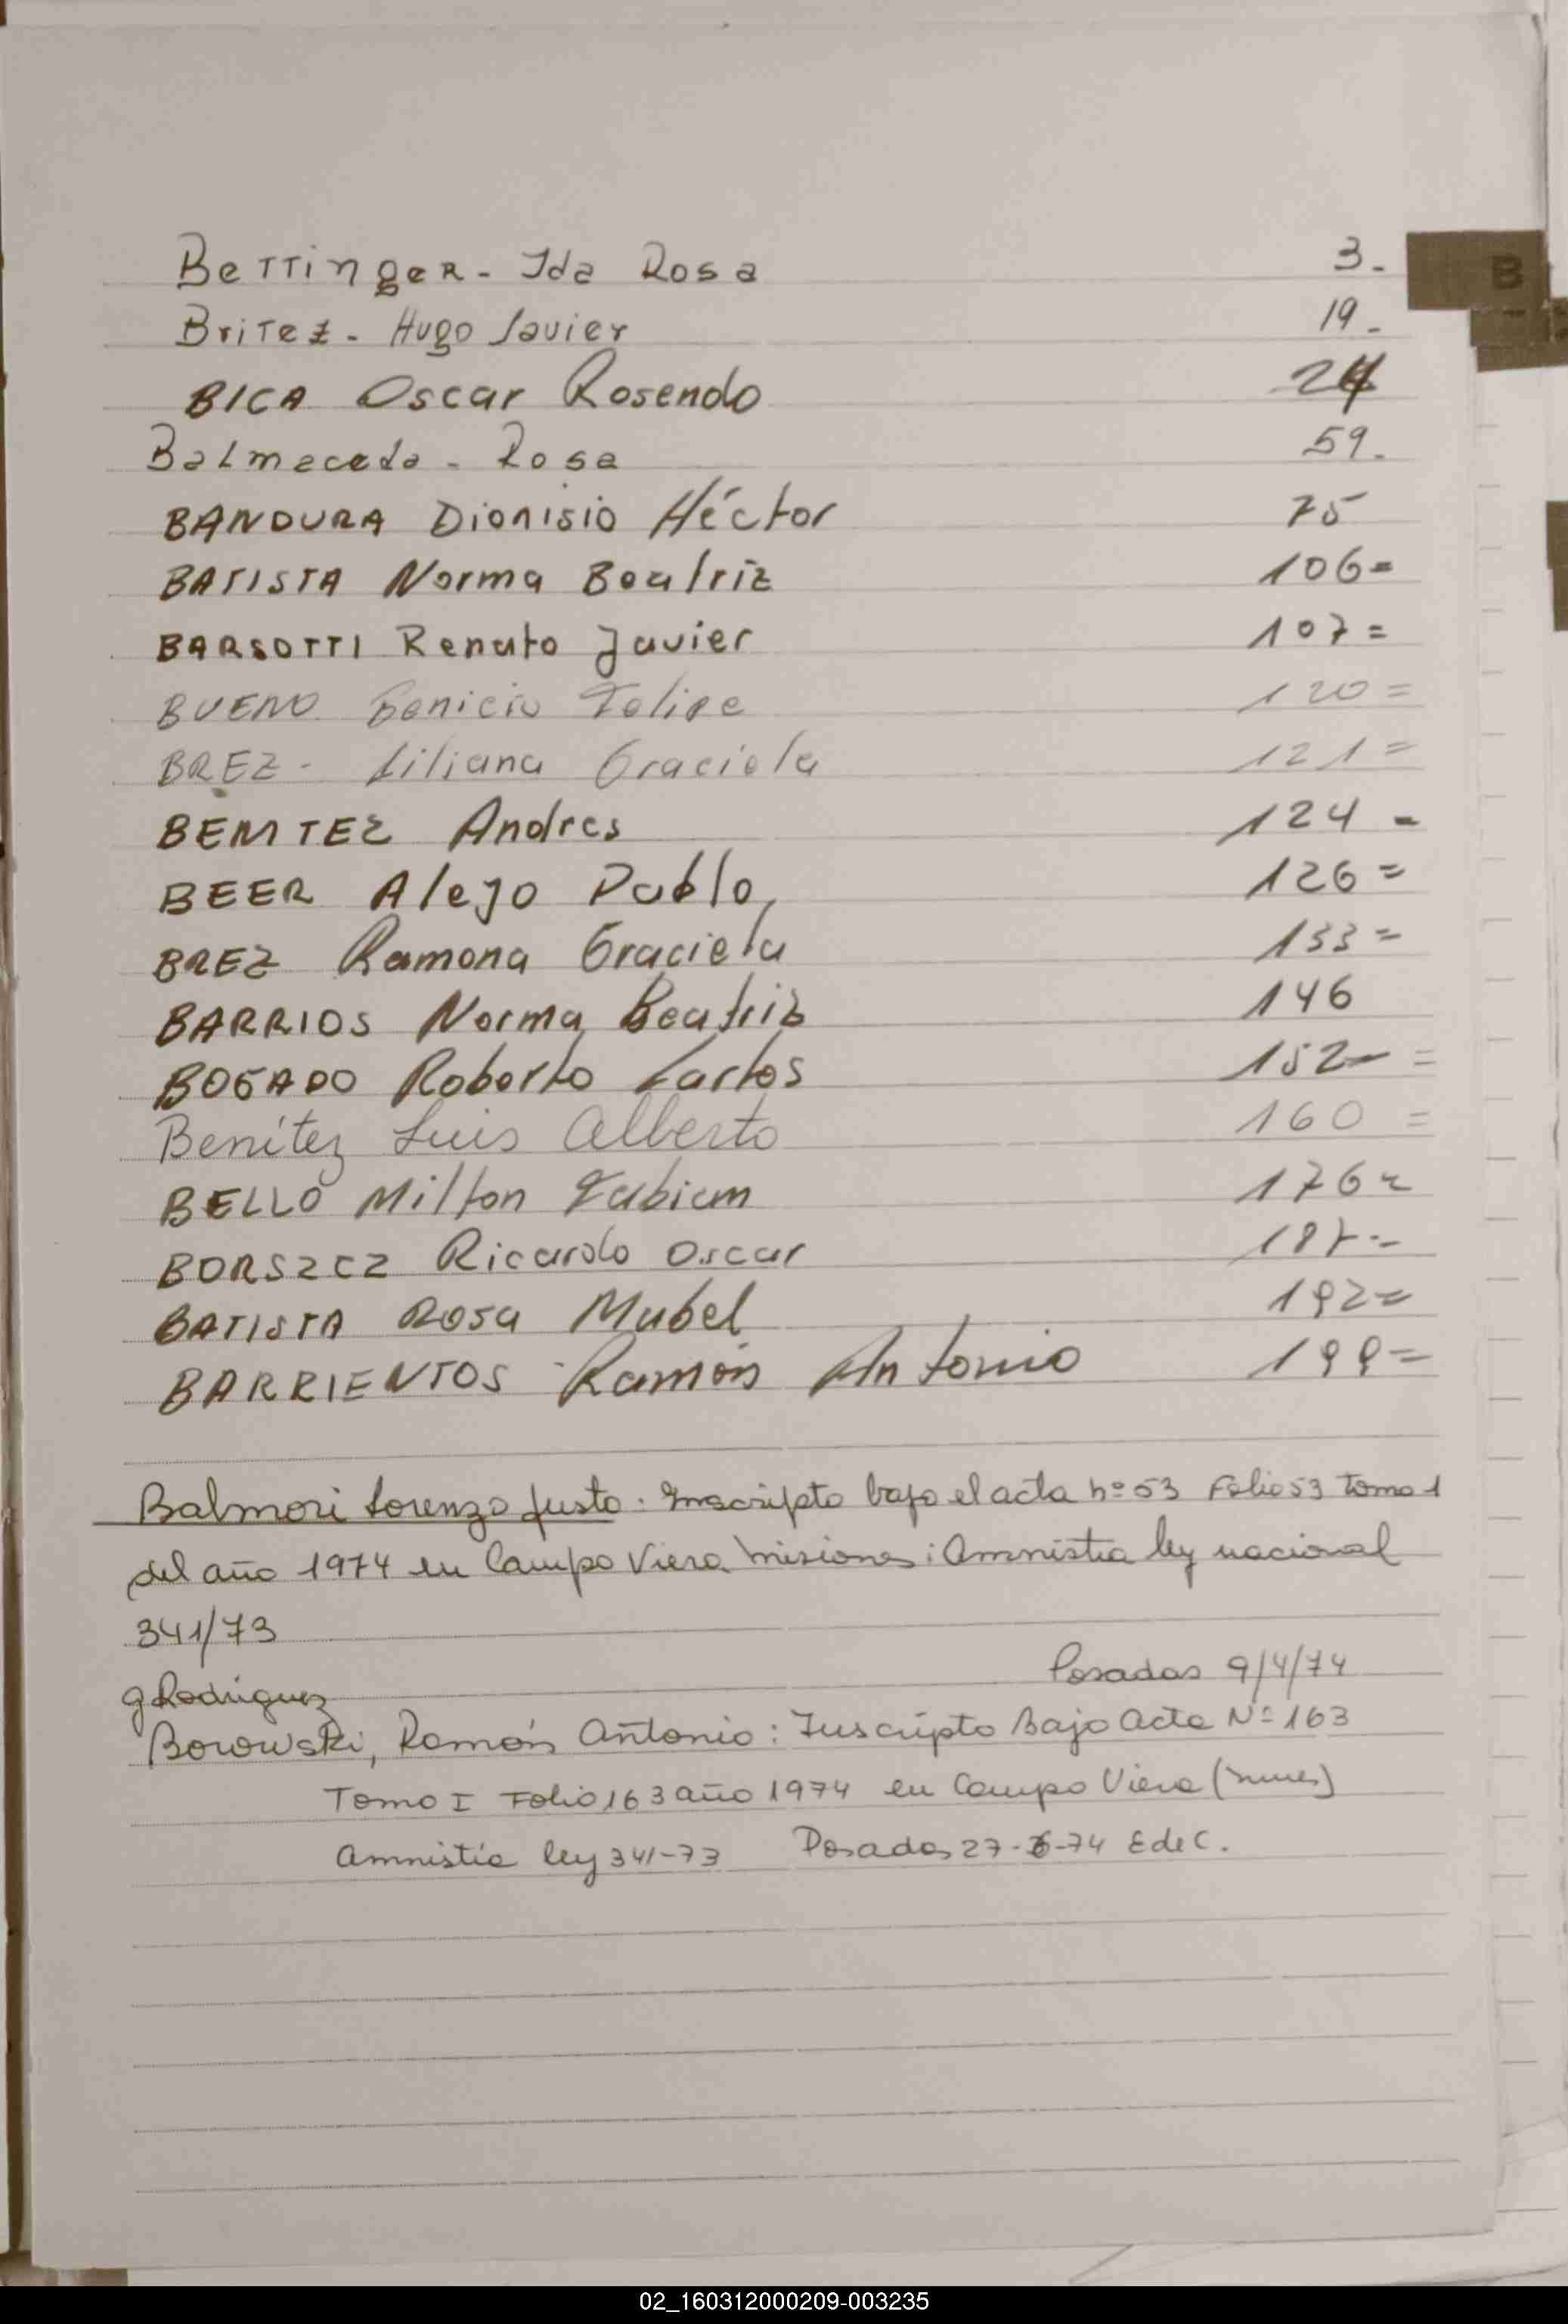 B
Bettinger - Ida Rosa 3.-
Britez - Hugo Javier 19.-
BICA Oscar Rosendo 24
Balmeceda - Rosa 59.-
BANDURA Dionisio Héctor 75
BATISTA Norma Beatriz 106=
BARSOTTI Renato Javier 107=
BUENO Benicio Felipe 120=
BREZ - Liliana Graciela 121=
BENITEZ Andres 124 -
BEER Alejo Pablo, 126=
BREZ Ramona Graciela 133=
BARRIOS Norma Beatriz 146
BOGADO Roberto Carlos 152- =
Benítez Luis Alberto 160 =
BELLO Milton Fabian 176=
BORSZCZ Ricardo Oscar 187=
BATISTA Rosa Mabel 192=
BARRIENTOS Ramón Antonio 199=
Balmori Lorenzo Justo: Inscripto bajo el acta nº 53 Folio 53 Tomo 1
del año 1974 en Campo Viera Misiones: Amnistia ley nacional
341/73
Posadas 9/4/74
g Rodriguez
Borowski, Ramón Antonio: Inscripto Bajo Acta Nº 163
Tomo I Folio 163 año 1974 en Campo Viera (Mnes)
Amnistia ley 341-73 Posadas 27-6-74 EdeC.
02_160312000209-003235